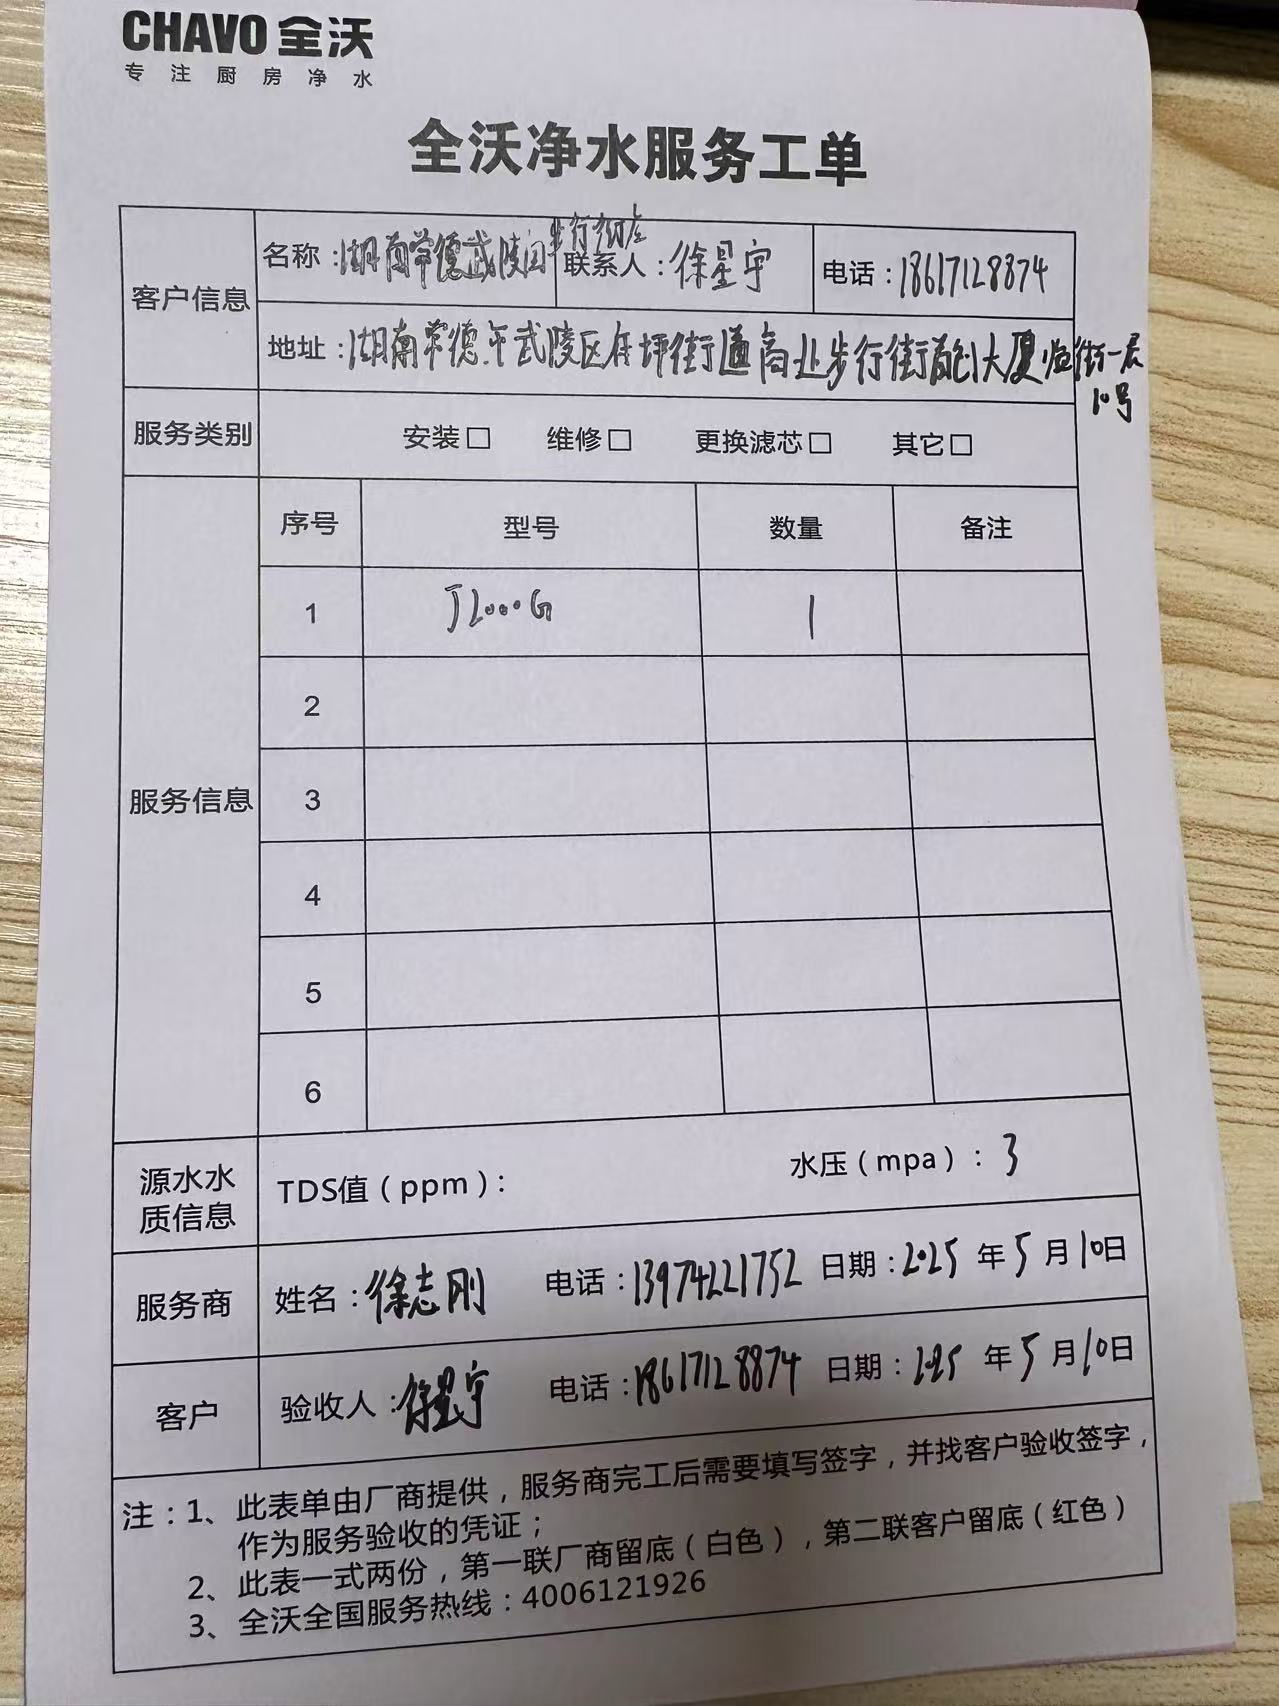 CHAVO 全沃
专注厨房净水
全沃净水服务工单
客户信息
名称：湖南常德武陵区步行街店
联系人：徐星宇
电话：18617128874
地址：湖南常德市武陵区 坪街道商业步行街 创大厦临街一层
10号
服务类别
安装□ 维修□ 更换滤芯□ 其它□
服务信息
序号 型号 数量 备注
1 J2000G 1
2
3
4
5
6
源水水质信息
TDS值（ppm）： 水压（mpa）：3
服务商
姓名：徐志刚 电话：13974221752 日期：2025 年 5 月 10日
客户
验收人：徐星宇 电话：18617128874 日期：2025 年 5 月 10日
注：1、此表单由厂商提供，服务商完工后需要填写签字，并找客户验收签字，
作为服务验收的凭证；
2、此表一式两份，第一联厂商留底（白色），第二联客户留底（红色）
3、全沃全国服务热线：4006121926